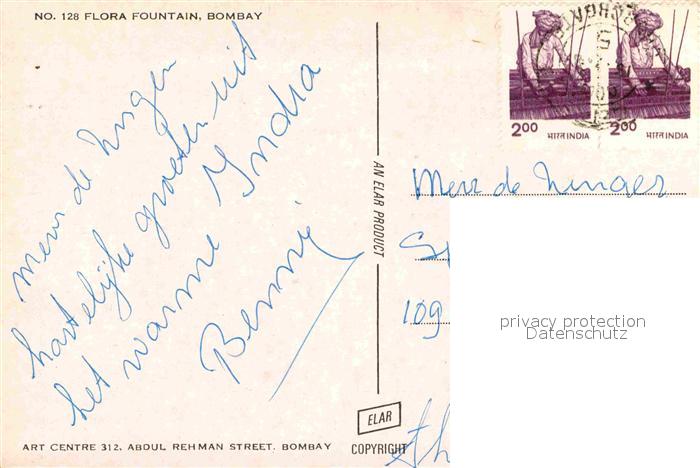 NO. 128 FLORA FOUNTAIN, BOMBAY
mevr de
hartelijke groeten uit
het warme India
Benni
AN ELAR PRODUCT
ELAR
ART CENTRE 312, ABDUL REHMAN STREET. BOMBAY
COPYRIGHT
2.00
भारत INDIA
2.00
भारत INDIA
Mevr de
109
privacy protection
Datenschutz